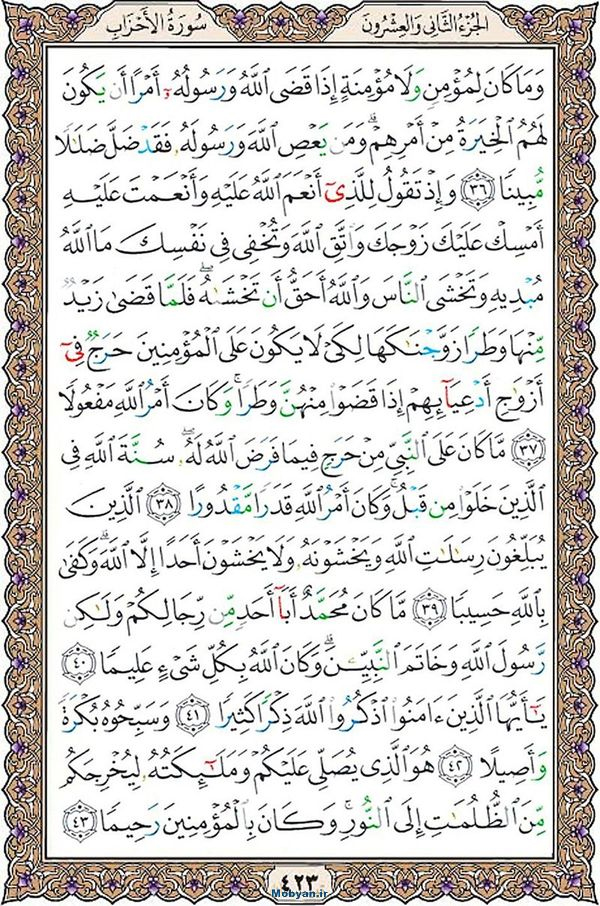 الجُزءُ الثَّانِی وَالعِشرُونَ
سُورَةُ الأَحزَابِ
وَمَا كَانَ لِمُؤْمِنٍ وَلَا مُؤْمِنَةٍ إِذَا قَضَى ٱللَّهُ وَرَسُولُهُۥٓ أَمْرًا أَن يَكُونَ
لَهُمُ ٱلْخِيَرَةُ مِنْ أَمْرِهِمْ ۗ وَمَن يَعْصِ ٱللَّهَ وَرَسُولَهُۥ فَقَدْ ضَلَّ ضَلَـٰلًا
مُّبِينًا ﴿٣٦﴾ وَإِذْ تَقُولُ لِلَّذِىٓ أَنْعَمَ ٱللَّهُ عَلَيْهِ وَأَنْعَمْتَ عَلَيْهِ
أَمْسِكْ عَلَيْكَ زَوْجَكَ وَٱتَّقِ ٱللَّهَ وَتُخْفِى فِى نَفْسِكَ مَا ٱللَّهُ
مُبْدِيهِ وَتَخْشَى ٱلنَّاسَ وَٱللَّهُ أَحَقُّ أَن تَخْشَىٰهُ ۖ فَلَمَّا قَضَىٰ زَيْدٌ
مِّنْهَا وَطَرًا زَوَّجْنَـٰكَهَا لِكَىْ لَا يَكُونَ عَلَى ٱلْمُؤْمِنِينَ حَرَجٌ فِىٓ
أَزْوَٰجِ أَدْعِيَآئِهِمْ إِذَا قَضَوْا۟ مِنْهُنَّ وَطَرًا ۚ وَكَانَ أَمْرُ ٱللَّهِ مَفْعُولًا
﴿٣٧﴾ مَّا كَانَ عَلَى ٱلنَّبِىِّ مِنْ حَرَجٍ فِيمَا فَرَضَ ٱللَّهُ لَهُۥ ۖ سُنَّةَ ٱللَّهِ فِى
ٱلَّذِينَ خَلَوْا۟ مِن قَبْلُ ۚ وَكَانَ أَمْرُ ٱللَّهِ قَدَرًا مَّقْدُورًا ﴿٣٨﴾ ٱلَّذِينَ
يُبَلِّغُونَ رِسَـٰلَـٰتِ ٱللَّهِ وَيَخْشَوْنَهُۥ وَلَا يَخْشَوْنَ أَحَدًا إِلَّا ٱللَّهَ ۗ وَكَفَىٰ
بِٱللَّهِ حَسِيبًا ﴿٣٩﴾ مَّا كَانَ مُحَمَّدٌ أَبَآ أَحَدٍ مِّن رِّجَالِكُمْ وَلَـٰكِن
رَّسُولَ ٱللَّهِ وَخَاتَمَ ٱلنَّبِيِّـۧنَ ۗ وَكَانَ ٱللَّهُ بِكُلِّ شَىْءٍ عَلِيمًا ﴿٤٠﴾
يَـٰٓأَيُّهَا ٱلَّذِينَ ءَامَنُوا۟ ٱذْكُرُوا۟ ٱللَّهَ ذِكْرًا كَثِيرًا ﴿٤١﴾ وَسَبِّحُوهُ بُكْرَةً
وَأَصِيلًا ﴿٤٢﴾ هُوَ ٱلَّذِى يُصَلِّى عَلَيْكُمْ وَمَلَـٰٓئِكَتُهُۥ لِيُخْرِجَكُم
مِّنَ ٱلظُّلُمَـٰتِ إِلَى ٱلنُّورِ ۚ وَكَانَ بِٱلْمُؤْمِنِينَ رَحِيمًا ﴿٤٣﴾
٤٢٣
Mobyan.ir